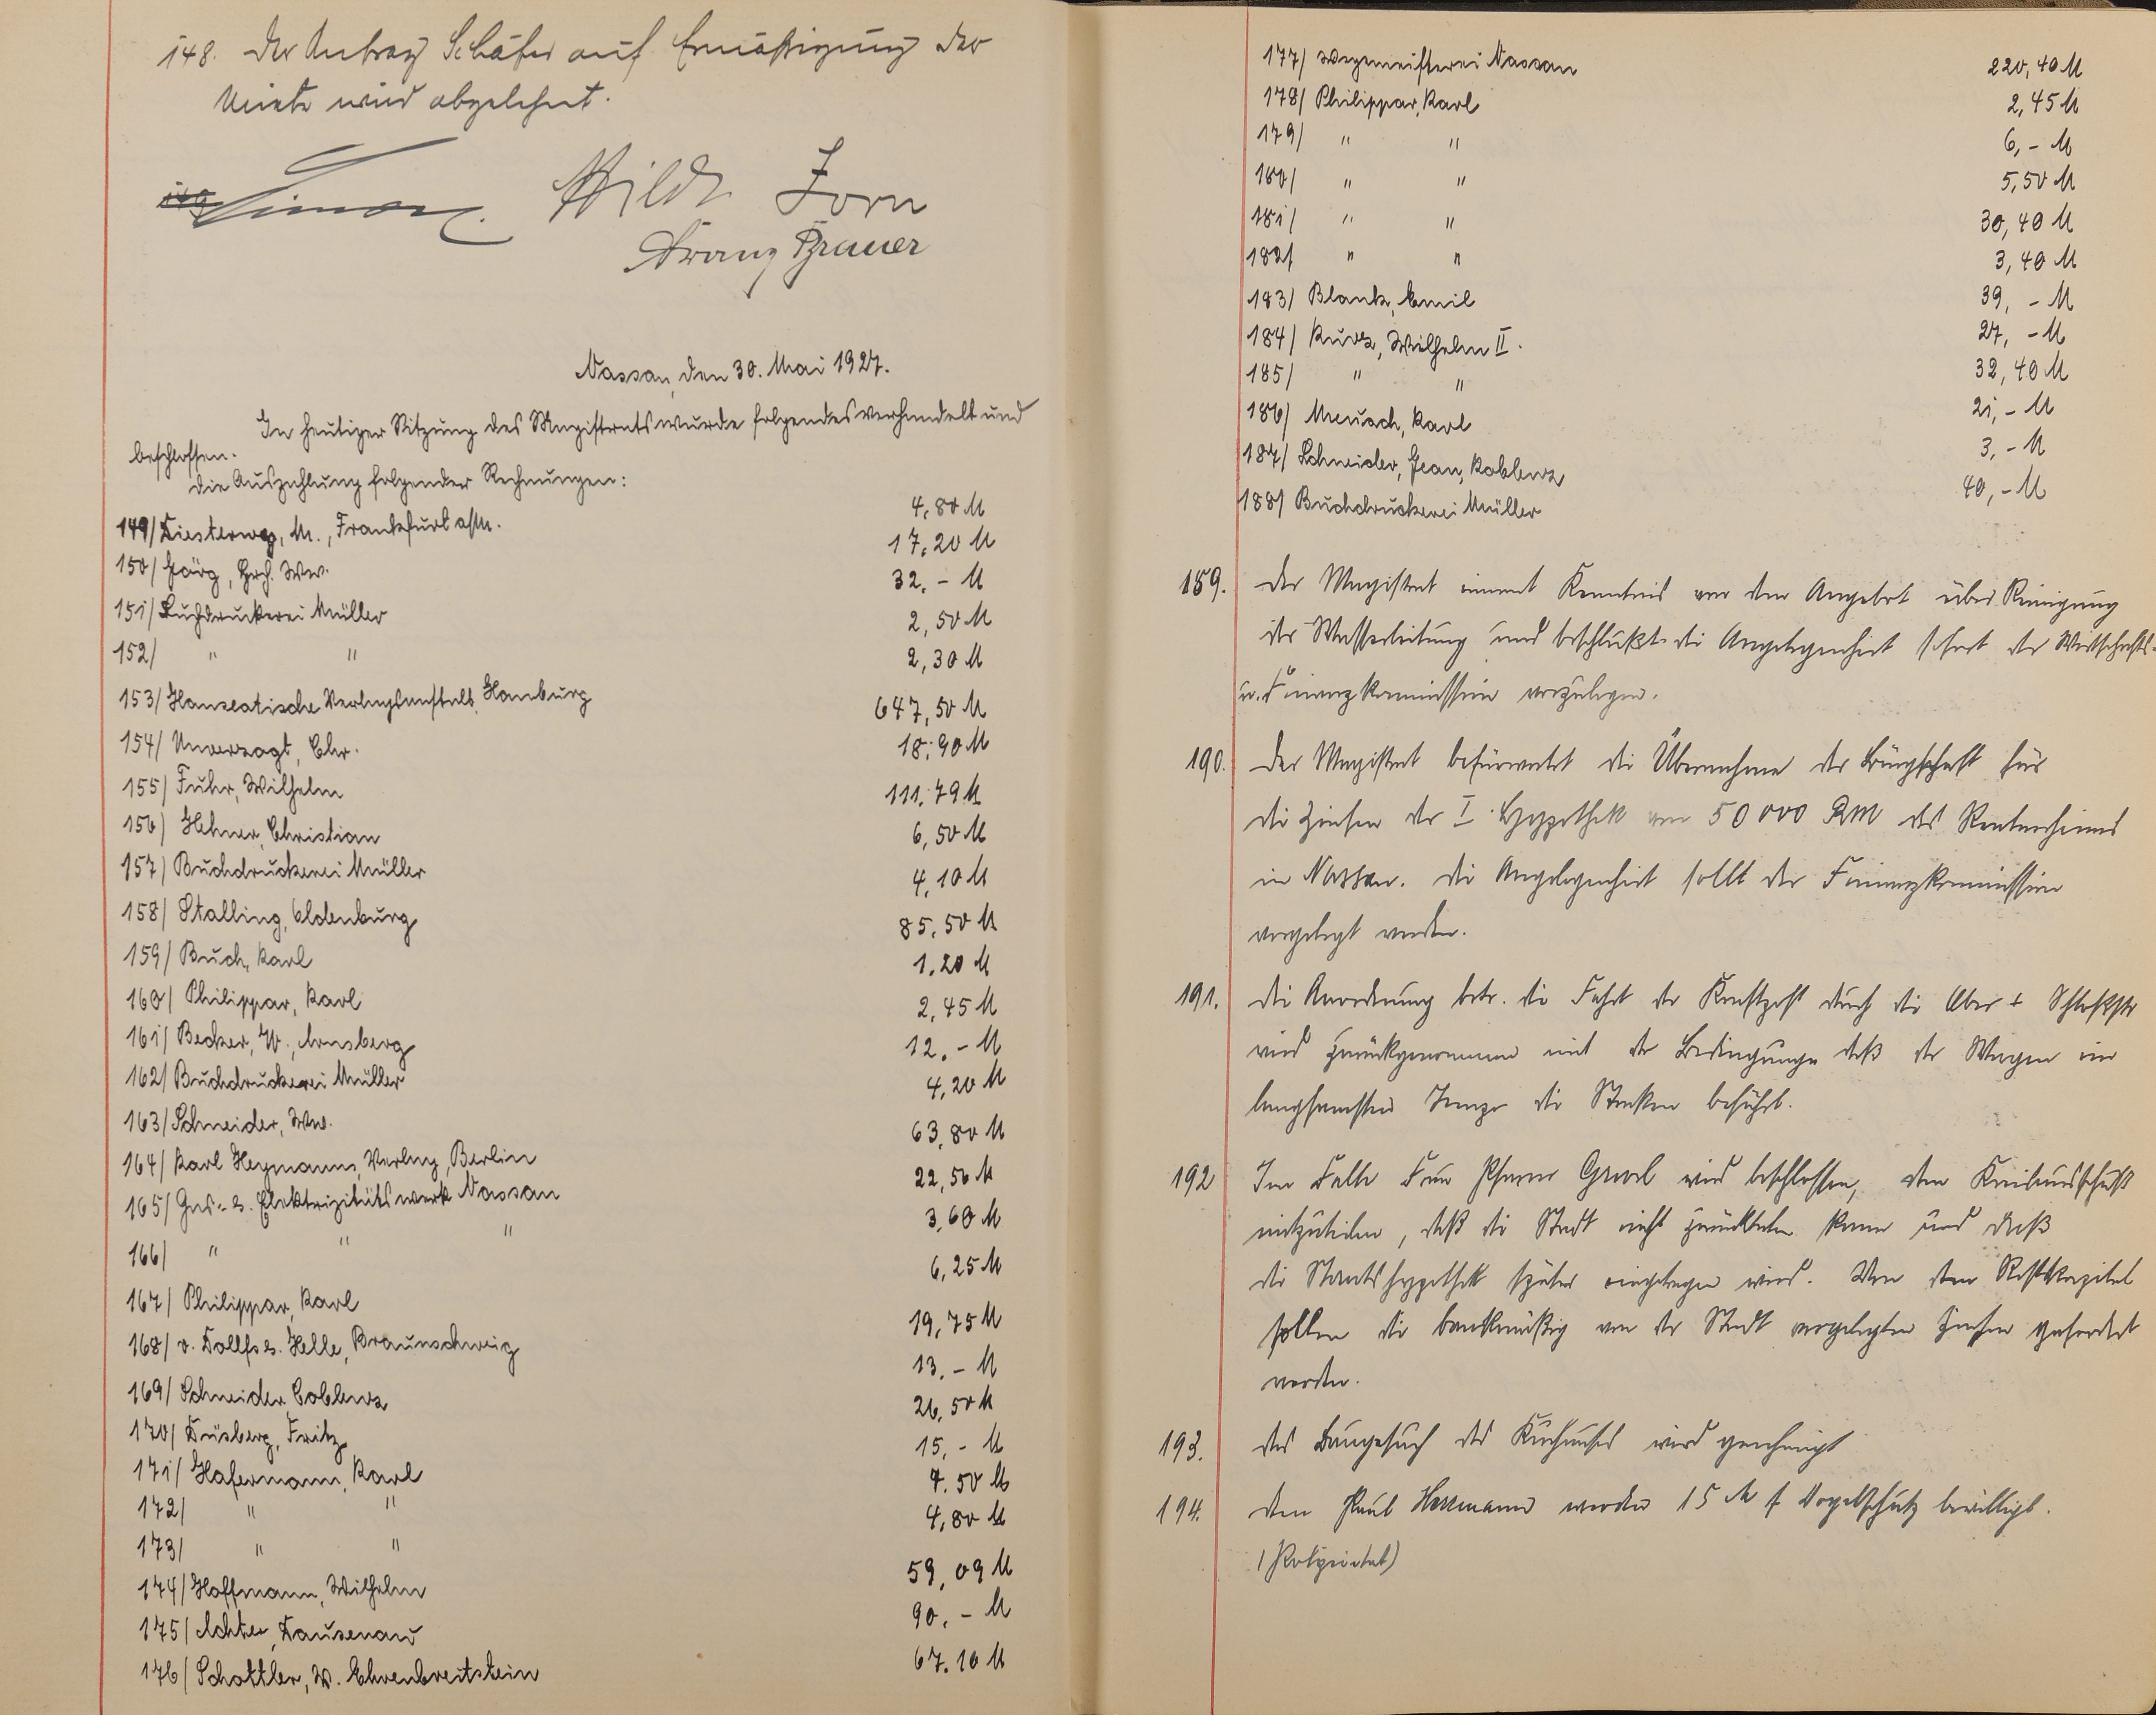 148. Der Antrag Schäfer auf Ermäßigung der
Miete wird abgelehnt.
Simon. Hild Zorn
Franz Brauer
Nassau, den 30. Mai 1927.
In heutiger Sitzung des Magistrats wurde folgendes verhandelt und
beschlossen.
Die Auszahlung folgender Rechnungen:
149/ Diesterweg, M., Frankfurt a/M. 4,80 M
150/ Jörg, Hrch. Ww. 17,20 M
151/ Buchdruckerei Müller 32,- M
152/ " " 2,50 M
153/ Hanseatische Verlagsanstalt, Hamburg 2,30 M
154/ Unverzagt, Chr. 647,50 M
155/ Fuhr, Wilhelm 18,90 M
156/ Hehner, Christian 111,79 M
157/ Buchdruckerei Müller 6,50 M
158/ Stalling, Oldenburg 4,10 M
159/ Buch, Karl 85,50 M
160/ Philippar, Karl 1,20 M
161/ Becker, W., Arnsberg 2,45 M
162/ Buchdruckerei Müller 12,- M
163/ Schneider, Ww. 4,20 M
164/ Karl Heymanns, Verlag, Berlin 63,80 M
165/ Gas- u. Elektrizitätswerk Nassau 22,56 M
166/ " " " 3,60 M
167/ Philippar, Karl 6,25 M
168/ v. Dolffs u. Helle, Braunschweig 19,75 M
169/ Schneider, Coblenz 13,- M
170/ Düsberg, Fritz 26,50 M
171/ Hafermann, Karl 15,- M
172/ " " 4,50 M
173/ " " 4,80 M
174/ Hoffmann, Wilhelm 59,09 M
175/ Achter, Dausenau 90,- M
176/ Schottler, W. Ehrenbreitstein 67,10 M
177/ Wegemeisterei Nassau 220,40 M
178/ Philippar, Karl 2,45 M
179/ " " 6,- M
180/ " " 5,50 M
181/ " " 30,40 M
182/ " " 3,40 M
183/ Blank, Emil 39,- M
184/ Kurz, Wilhelm II. 27,- M
185/ " " 32,40 M
186/ Meusch, Karl 21,- M
187/ Schneider, Jean, Koblenz 3,- M
188/ Buchdruckerei Müller 40,- M
189. Der Magistrat nimmt Kenntnis von dem Angebot über Reinigung
der Wasserleitung und beschließt die Angelegenheit sofort der Wirtschafts-
u. Finanzkommission vorzulegen.
190. Der Magistrat befürwortet die Übernahme der Bürgschaft für
die Zinsen der I. Hypothek von 50 000 RM des Rentnerheims
in Nassau. Die Angelegenheit sollt der Finanzkommission
vorgelegt werden.
191. Die Anordnung betr. die Fahrt der Kraftpost durch die Ober + Schloßstr
wird zurückgenommen mit der Bedingung daß der Wagen im
langsamsten Tempo die Strecken befährt.
192 Im Falle Frau Pfarrer wird beschlossen, dem Kreisausschuß
mitzuteilen, daß die Stadt nicht zurücktreten kann und daß
die Staatshypothek später eingetragen wird. Von dem Restkapital
sollen die bankmäßig von der Stadt vorgelegten Zinsen gefordert
werden.
193. Das Baugesuch des Kurhauses wird genehmigt
194. Dem Paul Hermann werden 15 M f Vogelschutz bewilligt.